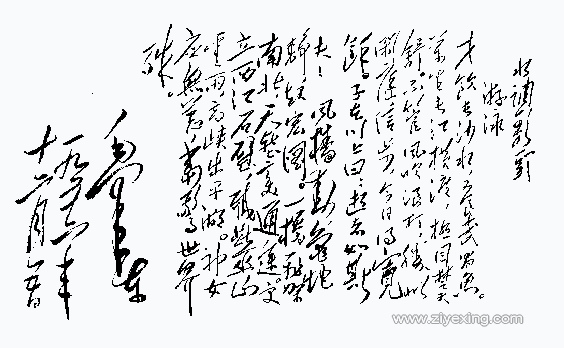 水调歌头
游泳
才飲长沙水,又食武昌魚。
萬里长江横渡,极目楚天
舒。不管风吹浪打,勝似
闲庭信步,今日得寬
馀。子在川上曰:逝者如斯
夫!风樯動,龟蛇
静,起宏圖。一橋飛架
南北,天堑变通途。更
立西江石壁,截断巫山
雲雨,高峡出平湖。神女
应無恙,当驚世界
殊。
毛泽东
一九五六年
十二月五日
www.ziyexing.com